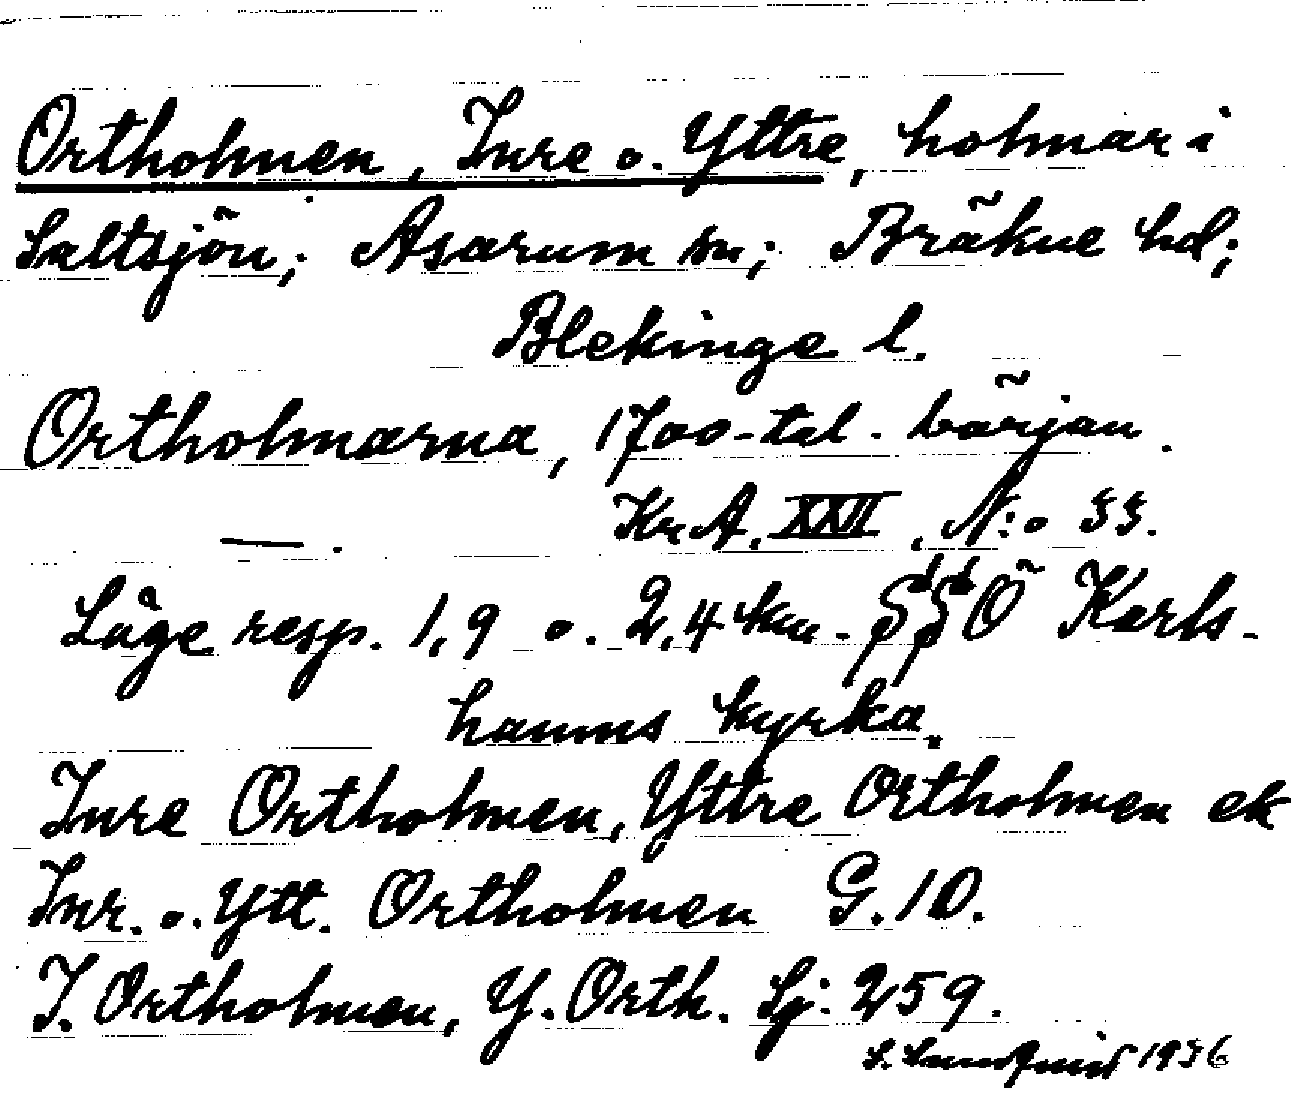 Ortholmen, Inre o. Yttre, holmar i
Saltsjön; Asarum sn; Bräkne hd;
Blekinge l.
Ortholmarna, 1700-tal. början.
Kr.A. XXII. N:o 33.
— .
Läge resp. 1,9 o. 2,4 km. SSÖ Karls-
hamns kyrka.
Inre Ortholmen, Yttre Ortholmen ek
Inr. o. Ytt. Ortholmen G.10.
I. Ortholmen, Y. Orth. Sj: 259.
S. Lundqvist 1936